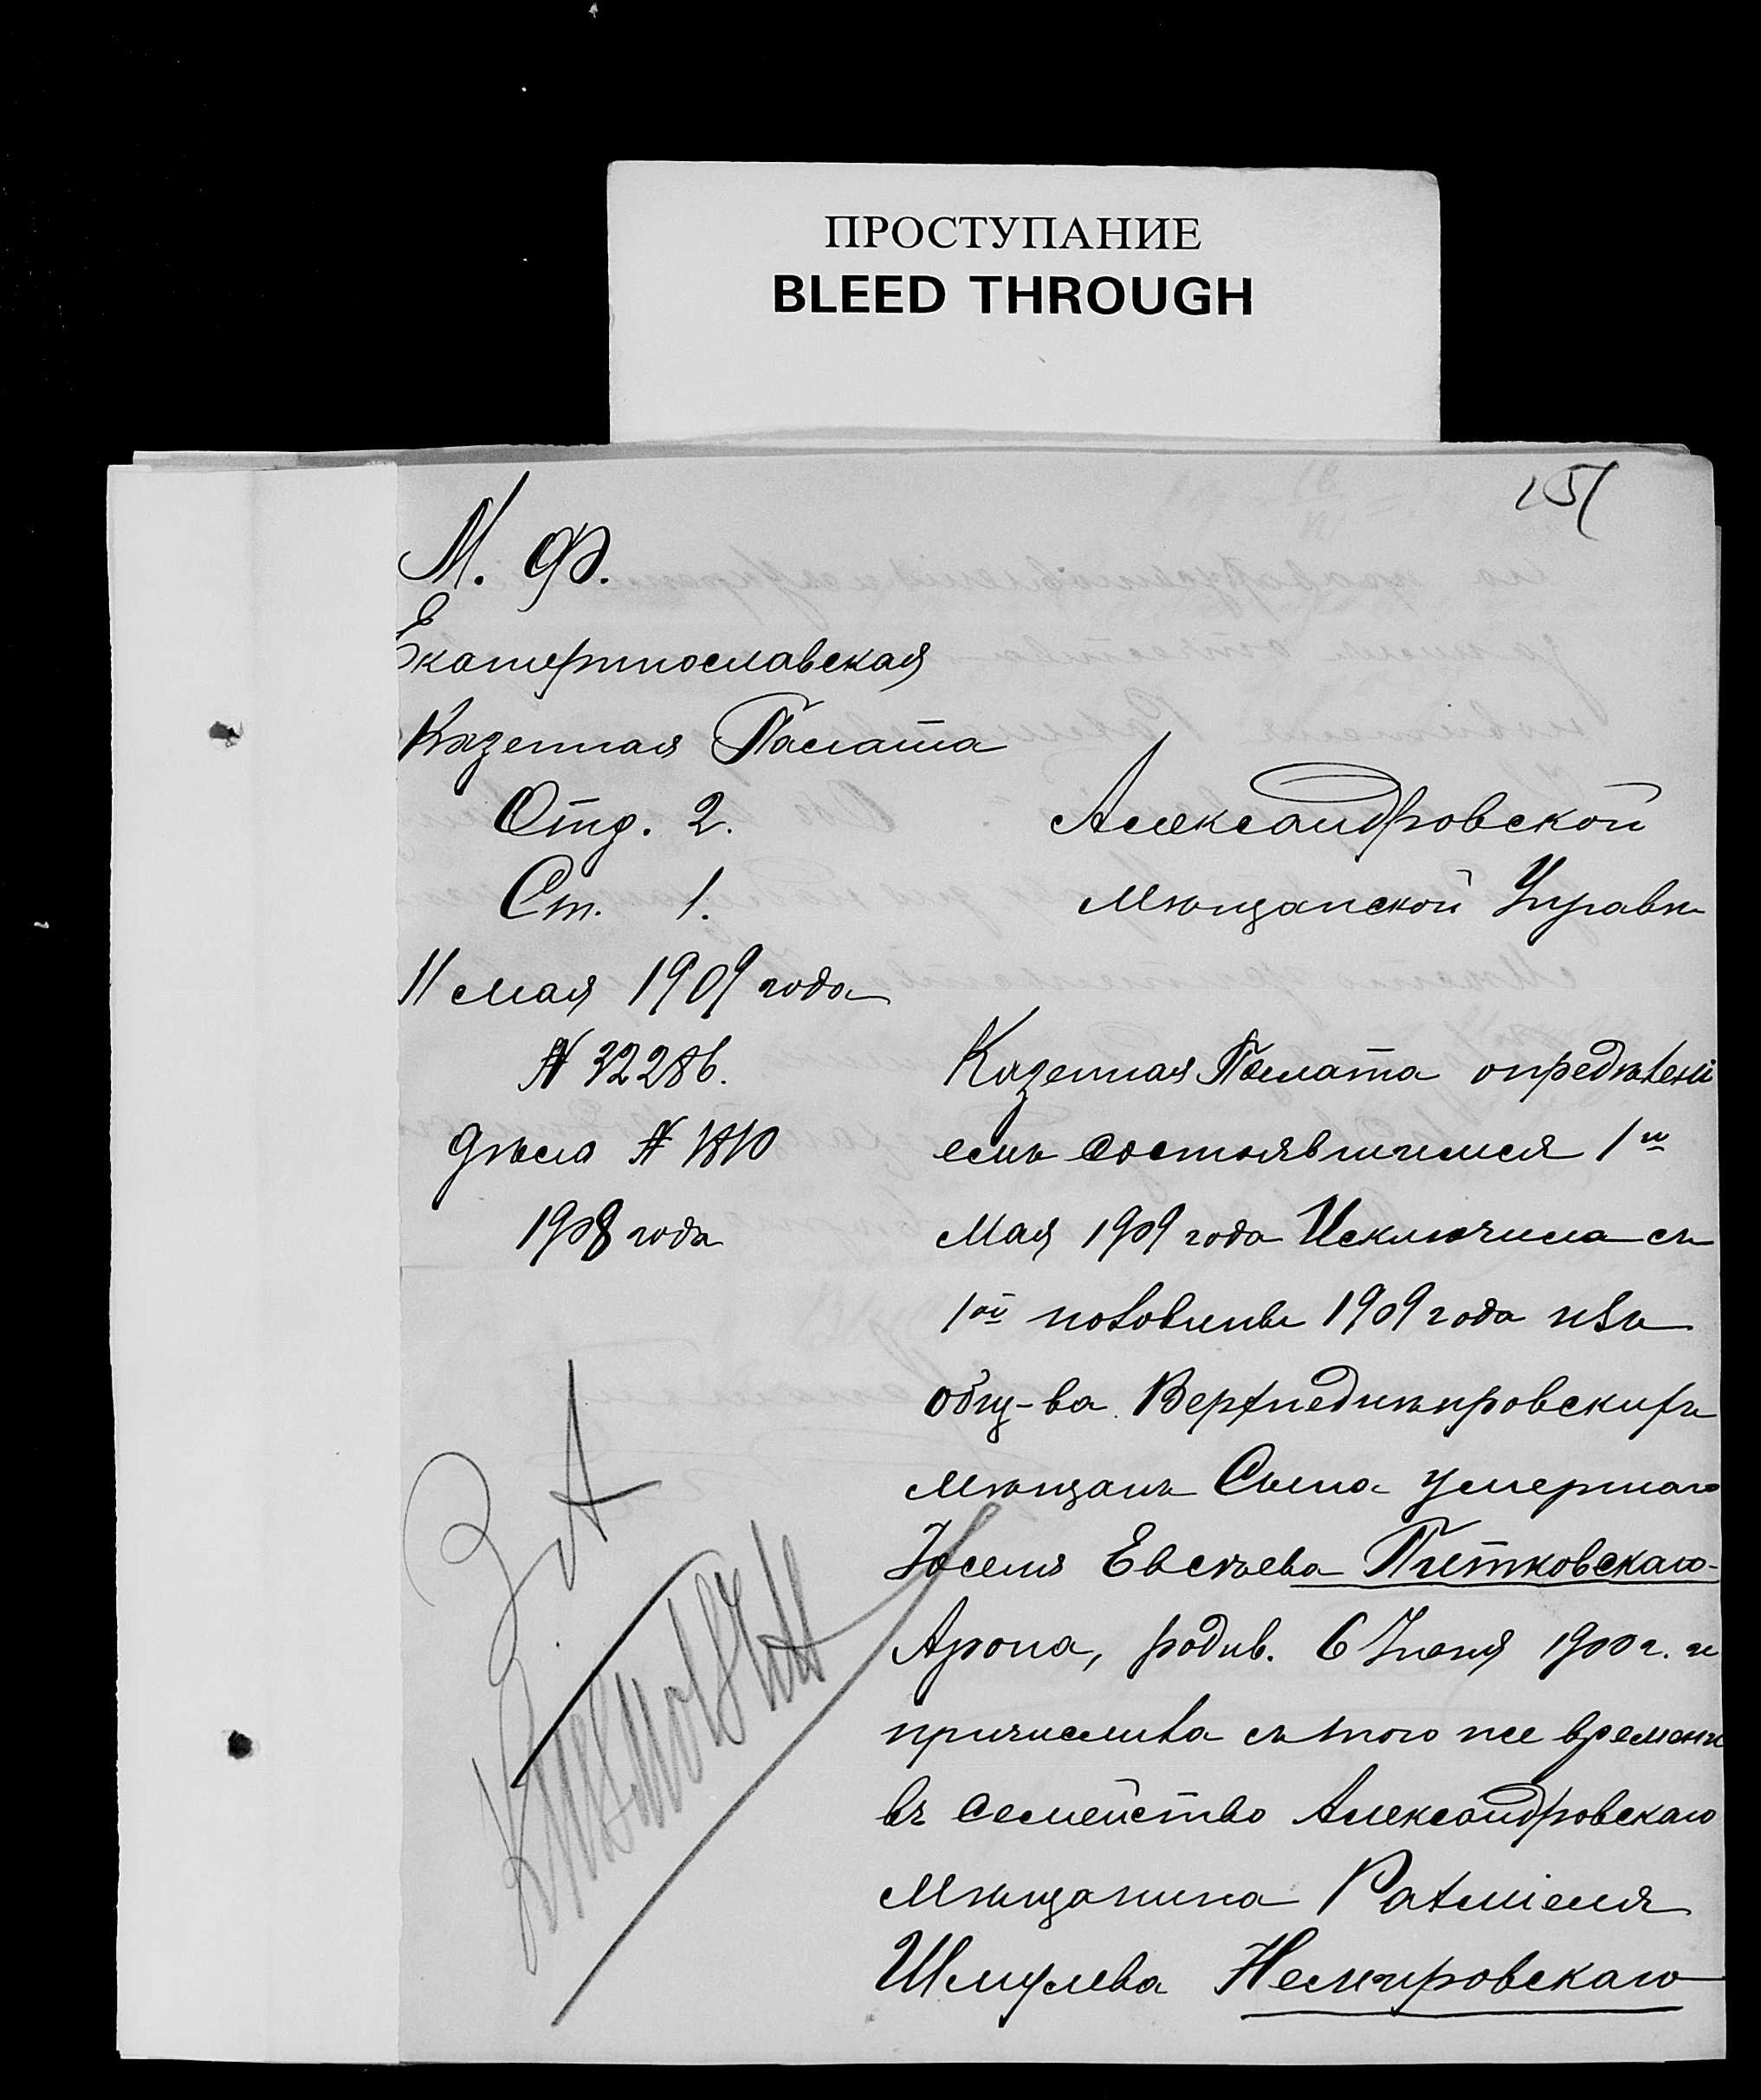 ПРОСТУПАНИЕ
BLEED THROUGH
151
М. Ф.
Екатеринославская
Казенная Палата
Отд. 2.
Ст. 1.
11 мая 1909 года
№ 32286.
дѣла № 1810
1908 года
Александровской
Мѣщанской Управѣ
Казенная Палата опредѣлені
емъ состоявшимся 1го
Мая 1909 года Исключила съ
1ой половины 1909 года изъ
общ-ва Верхнеднѣпровскихъ
мѣщанъ Сына умершаго
Іоселя Евсѣева Пятковскаго
Арона, родив. 6 Іюня 1900 г. и
причислила съ того же времени
въ семейство Александровскаго
Мѣщанина Рахміеля
Шмулева Немировскаго